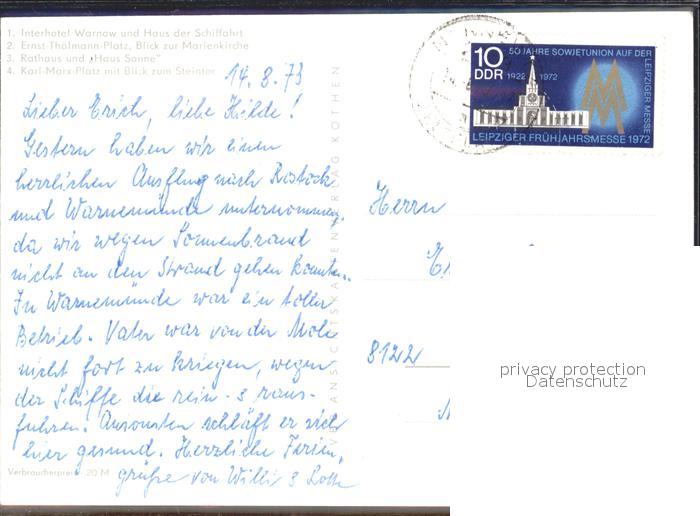 1. Interhotel Warnow und Haus der Schiffahrt
2. Ernst-Thälmann-Platz, Blick zur Marienkirche
3. Rathaus und „Haus Sonne"
4. Karl-Marx-Platz mit Blick zum Steintor
14.8.73
Lieber Erich, liebe Hilde!
Gestern haben wir einen
herrlichen Ausflug nach Rostock
und Warnemünde unternommen,
da wir wegen Sonnenbrand
nicht an den Strand gehen konnten.
In Warnemünde war ein toller
Betrieb. Vater war von der Mole
nicht fort zu kriegen, wegen
der Schiffe die rein- & raus-
fuhren. Ansonsten schläft er sich
hier gesund. Herzliche Ferien-
grüße von Willi &
Verbraucherpreis 0,20 M
VERLAG KÖTHEN
10
DDR
50 JAHRE SOWJETUNION AUF DER
LEIPZIGER MESSE
1922 1972
LEIPZIGER FRÜHJAHRSMESSE 1972
Herrn
8122
privacy protection
Datenschutz